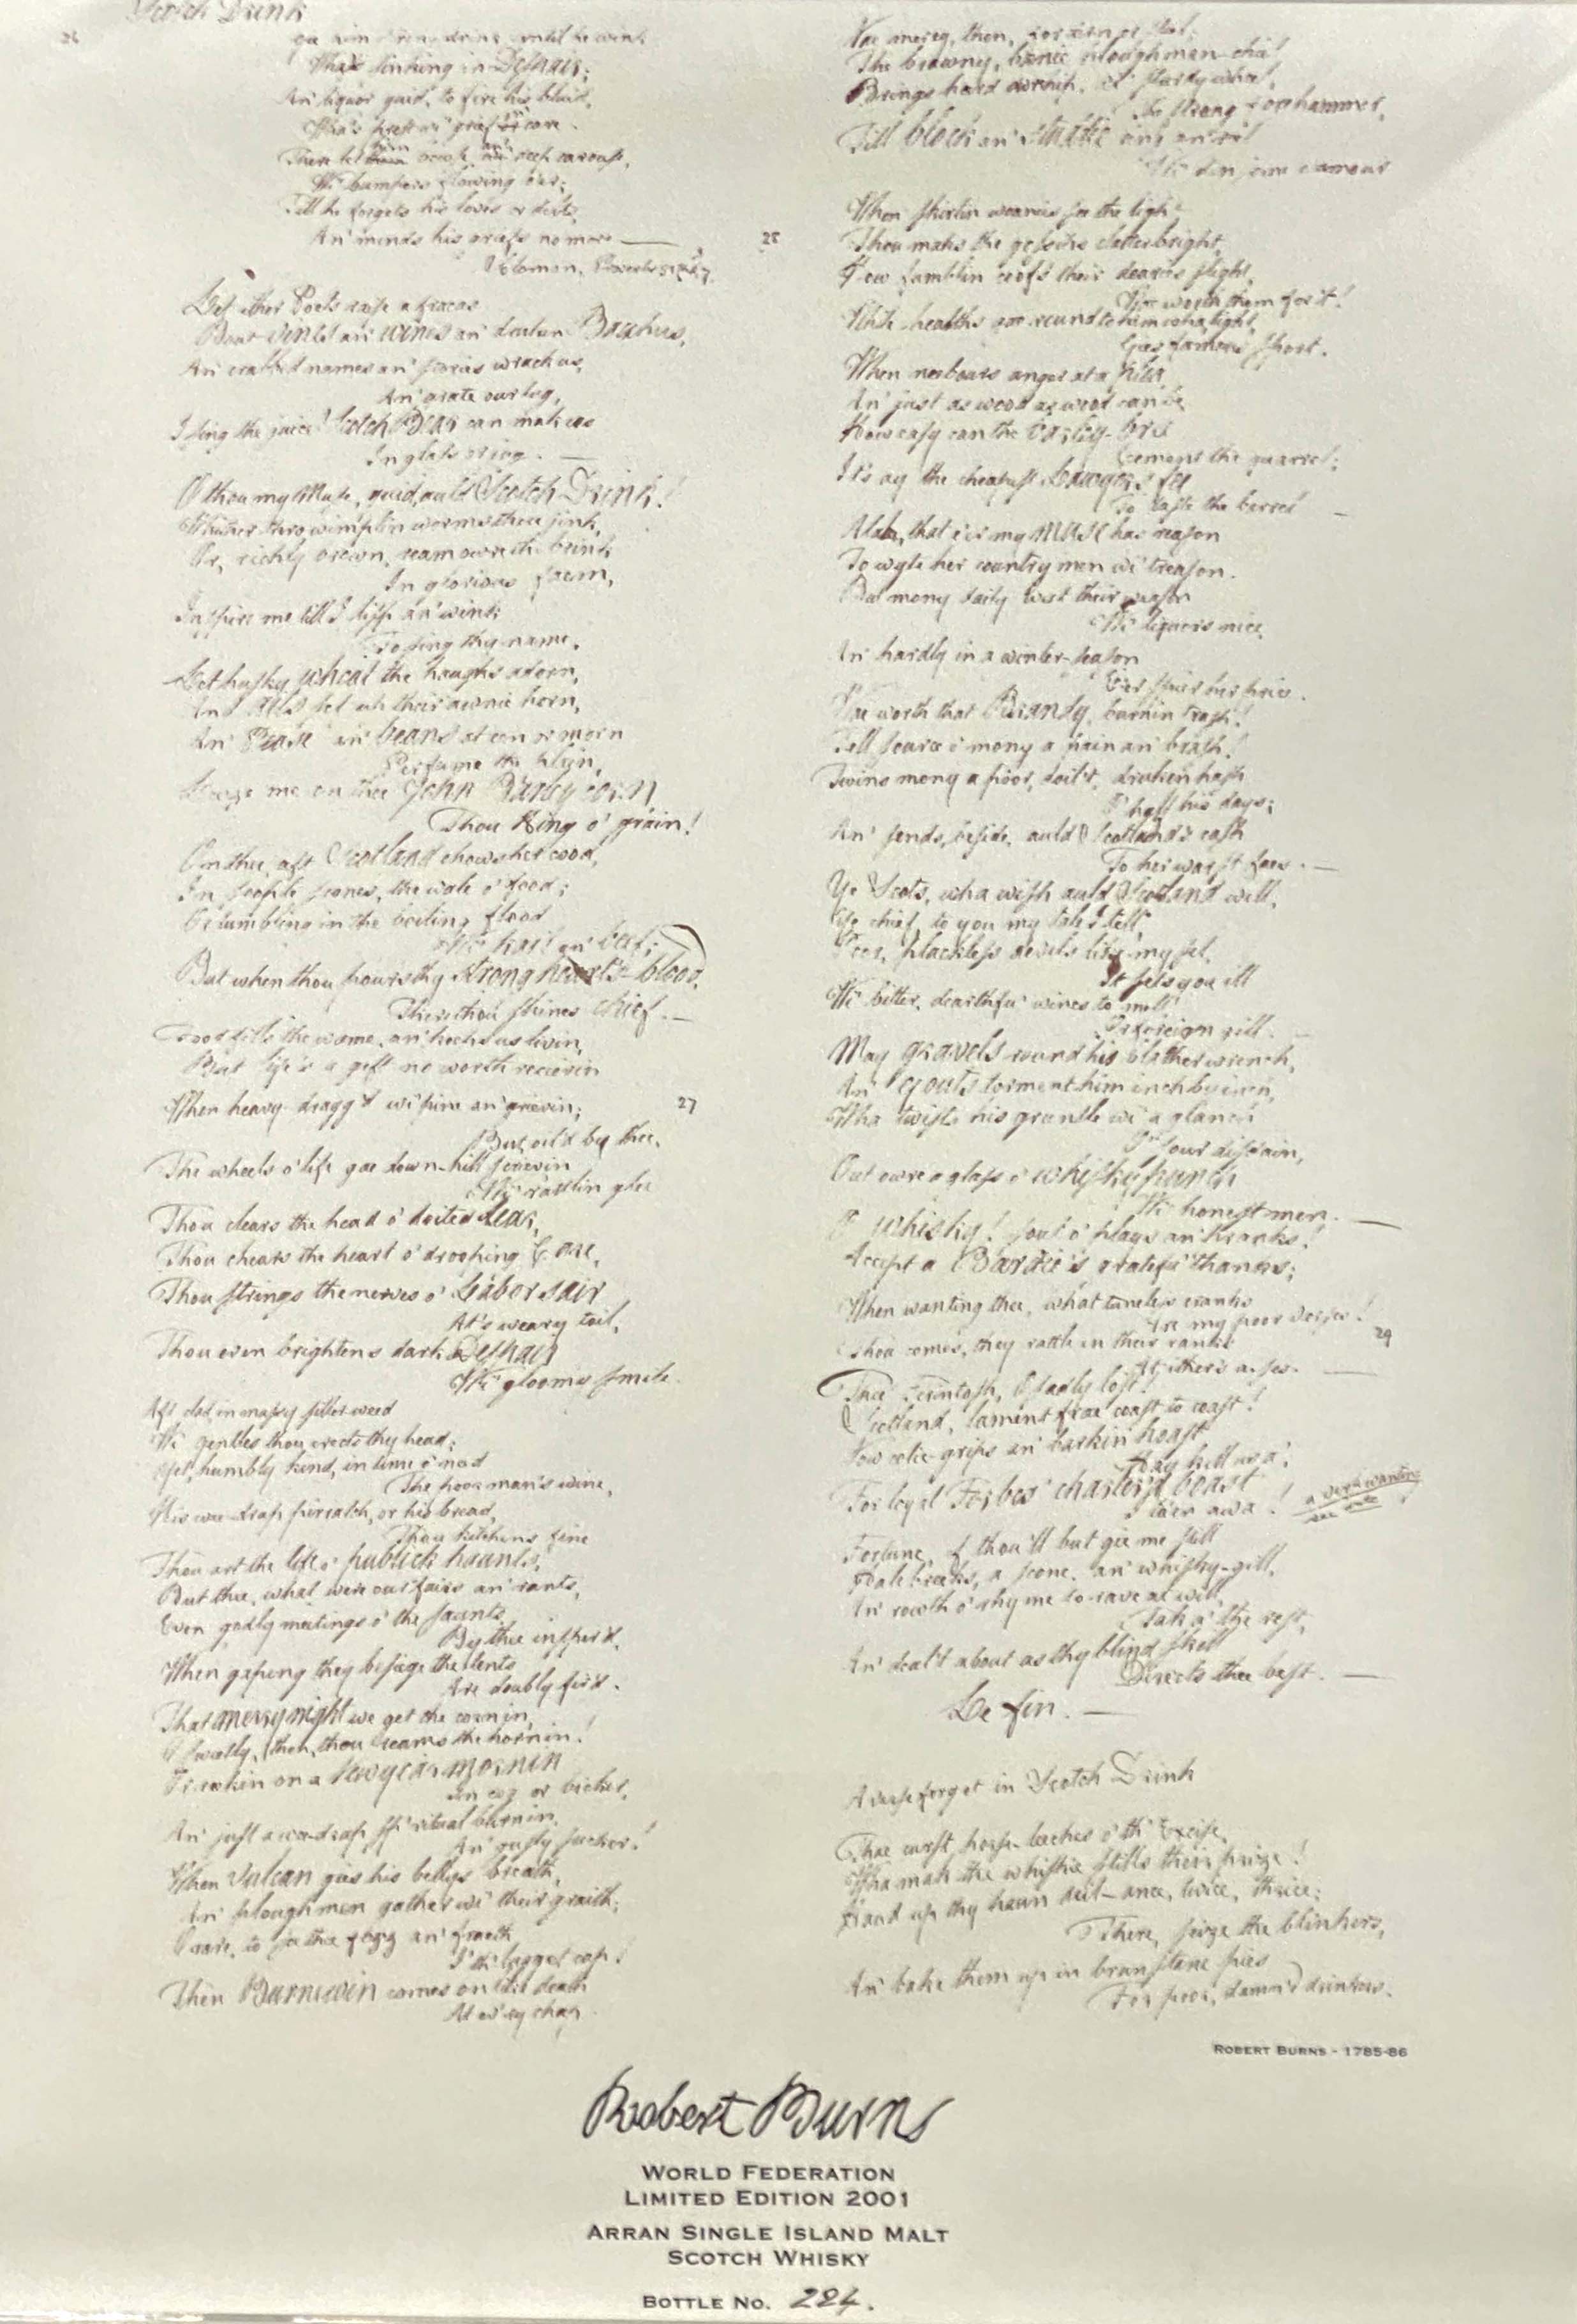 Scotch Drink
26
Gie him strong drink until he wink,
That's sinking in Despair;
An' liquor guid, to fire his bluid,
Wha's prest wi' grief an' care.
There let him bowse, an' deep carouse,
Wi' bumpers flowing o'er;
Till he forgets his loves or debts,
An' minds his griefs no more —
Solomon, Proverbs
Let other Poets raise a fracas
Bout vines an' wines an' druken Bacchus,
An' crabbed names an' stories wrack us,
An' grate our lug,
I sing the juice Scotch Bear can mak us
In glass or jug. —
O thou my Muse, guid, auld Scotch Drink!
Whether thro' wimplin worms thou jink,
Or, richly brown, ream owre the brink
In glorious faem,
Inspire me till I lisp an' wink
To sing thy name.
Let husky wheat the haughs adorn,
And Aits set up their awnie horn,
An' Pease an' beans at een or morn
Perfume the plain,
Leeze me on thee John Barleycorn
Thou King o' grain!
On thee, aft Scotland chows her cood,
In souple scones, the wale o' food;
Or tumbling in the boiling flood
Wi' kail an' beef;
But when thou pours thy strong heart's-blood,
There thou shines chief. —
Food fills the wame, an' keeps us livin,
But life's a gift no worth receivin
When heavy-dragg'd wi' pine an' grievin;
27
But, oil'd by thee,
The wheels o' life gae down-hill scrievin
Wi' rattlin glee
Thou clears the head o' doited Lear,
Thou chears the heart o' drooping Care,
Thou strings the nerves o' Labor sair
At's weary toil,
Thou even brightens dark Despair
Wi' gloomie smile.
Aft clad in massy siller weed
Wi' gentles thou erects thy head;
Yet, humbly kind, in time o' need
The poor man's wine,
His wee-drap pirratch, or his bread,
Thou kitchens fine
Thou art the life o' publick haunts,
But thee, what were our fairs an' rants,
Even godly meetings o' the saunts
By thee inspir'd,
When gaping they besiege the tents
Are doubly fir'd.
That merry night we get the corn in,
O sweetly, then, thou reams the horn in!
Or reekin on a Newyear-mornin
In cog or bicker,
An' just a wee-drap sp'ritual burn in,
An' gusty sucker!
When Vulcan gies his bellys breath,
An' ploughmen gather wi' their graith;
O rare, to see thee fizz an' freath
I' th' lugget cap!
Then Burnewin comes on like death
At ev'ry chap.
Nae mercy, then, for airn or steel;
The brawny, banie ploughman-chiel
Brings hard owrehip, wi' sturdy wheel,
The strong forehammer,
Till block an' studdie ring an' reel
Wi' din some clamour
When skirlin weanies see the light
28
Thou maks the gossips clatter bright,
How fumblin coofs their dearies slight,
Wae worth them for't!
While healths gae round to him wha, tight,
Gies famous sport.
When neebours anger at a plea,
An' just as wood as wood can be,
How easy can the barley-bree
Cement the quarrel;
It's ay the cheapest Lawyer's fee
To taste the barrel —
Alake, that e'er my MUSE has reason
To wyte her countrymen wi' treason.
But mony daily weet their weason
Wi' liquors nice,
An' hardly in a winter-season
E'er spier her price.
Wae worth that Brandy, burnin trash!
Fell source o' mony a pain an' brash!
Twins mony a poor, doil't, druken hash
O' half his days;
An' sends, beside, auld Scotland's cash
To her warst faes. —
Ye Scots, wha wish auld Scotland well,
Ye chief, to you my tale I tell,
Poor, plackless devils like mysel,
It sets you ill
Wi' bitter, dearthfu' wines to mell
Or foreign gill. —
May gravels round his blather wrench,
An' gouts torment him inch by inch,
Wha twists his gruntle wi' a glanch
O' sour disdain,
Out owre a glass o' whisky punch
Wi' honest men. —
O Whisky! soul o' plays an' pranks!
Accept a Bardie's gratefu' thanks;
When wanting thee, what tuneless cranks
Are my poor verses!
29
Thou comes, they rattle in their ranks
At ither's a-ses. —
Thee Ferintosh, O sadly lost!
Scotland, lament frae coast to coast!
Now colic-grips an' barkin hoast
May kill us a';
For loyal Forbes' charter'd boast
Is taen awa!
a verse wanting
Fortune, if thou'll but gie me still
Hale breeks, a scone, an' whisky-gill,
An' rowth o' rhyme to rave at will,
Tak a' the rest,
An' deal't about as thy blind skill
Directs thee best. —
Le fin. —
A verse forgot in Scotch Drink
Thae curst horse-leeches o' th' Excise,
Wha mak the whiskie stills their prize!
Haud up thy haun deil—ance, twice, thrice;
There, seize the blinkers,
An' bake them up in brunstane pies
For poor, damn'd drinkers.
ROBERT BURNS - 1785-86
Robert Burns
WORLD FEDERATION
LIMITED EDITION 2001
ARRAN SINGLE ISLAND MALT
SCOTCH WHISKY
BOTTLE NO. 224.